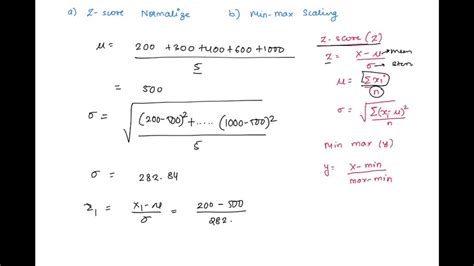 a) Z-score Normalize b) Min-max Scaling
μ = 200 + 300 + 400 + 600 + 1000
5
= 500
σ = √ (200-500)² + ..... (1000-500)²
5
σ = 282.84
Z₁ = x₁ - μ = 200 - 500
σ 282.
Z-score (Z)
Z = x - μ → mean
σ →
μ = Σxi
n
σ = √ Σ(xi - μ)²
n
Min max (y)
y = x - min
max-min